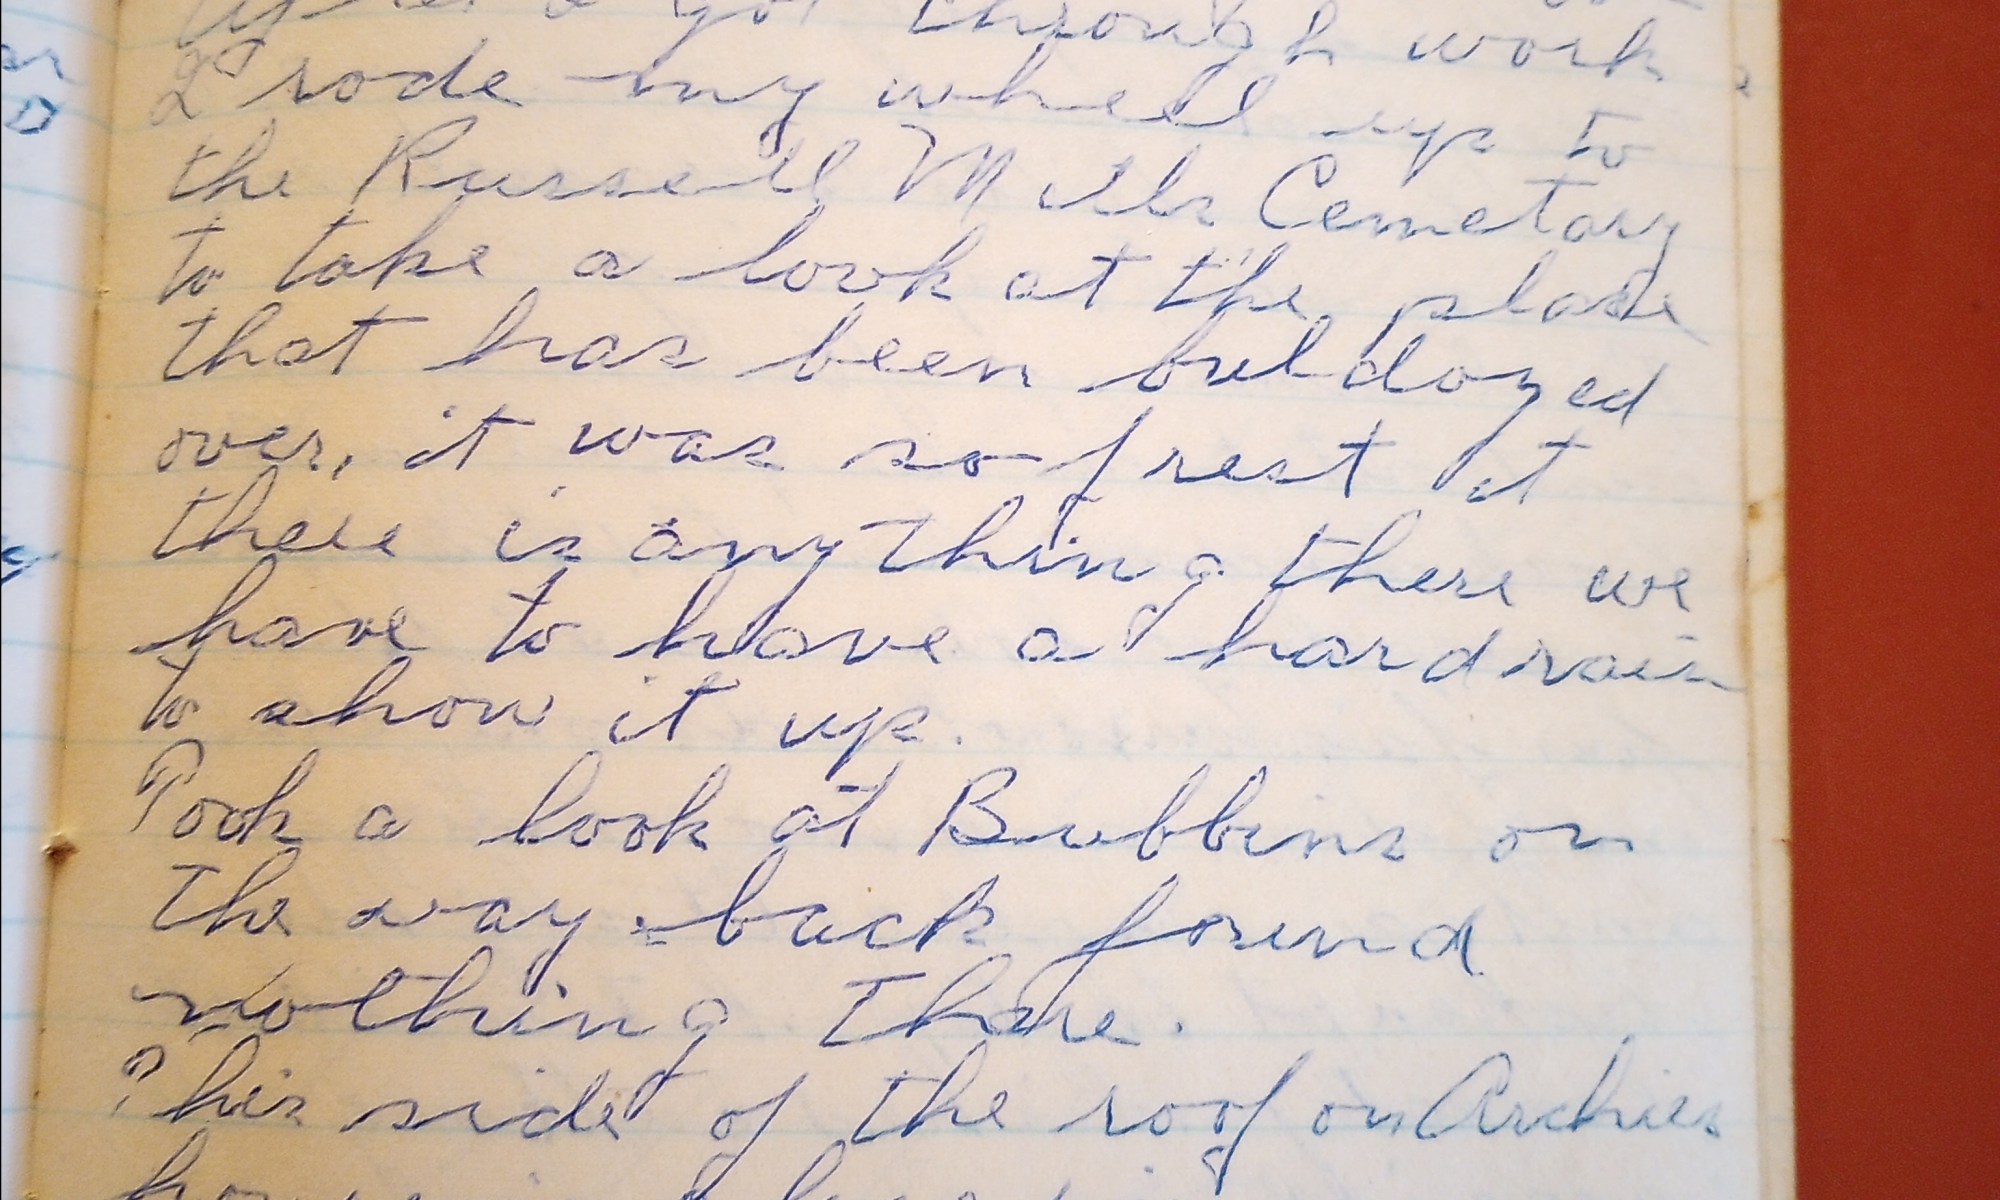 After I got through work
I rode my wheel up to
the Russell Mills Cemetary
to take a look at the place
that has been buldozed
over, it was so frest it
there is anything there we
have to have a hard rain
to show it up.
Took a look at Bubbins on
the way back found
nothing there.
This side of the roof on Archies